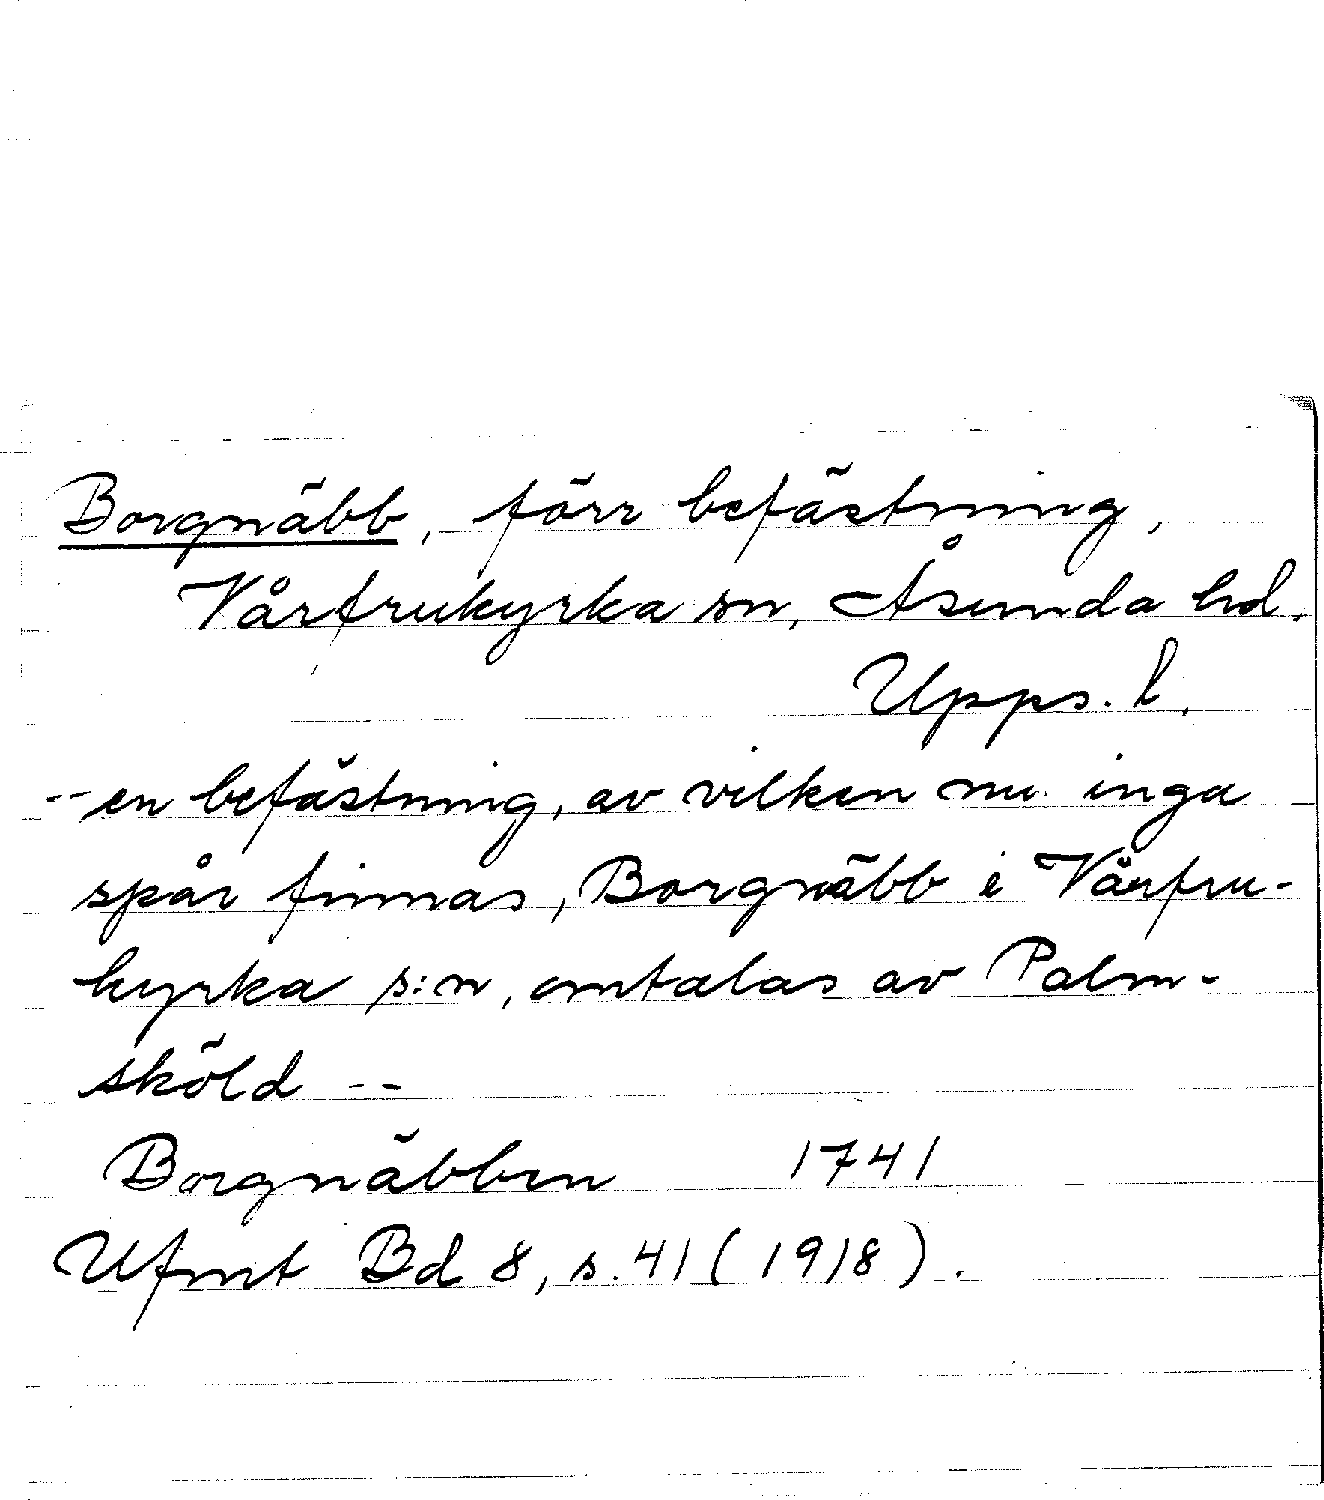 Borgnäbb, förr befästning,
Vårfrukyrka sn, Åsunda hd.
Upps. l.
-- en befästning, av vilken nu inga
spår finnas, Borgnäbb i Vårfru-
kyrka s:n, omtalas av Palm-
sköld --
Borgnäbben 1741
Ufmt Bd 8, s. 41 (1918).